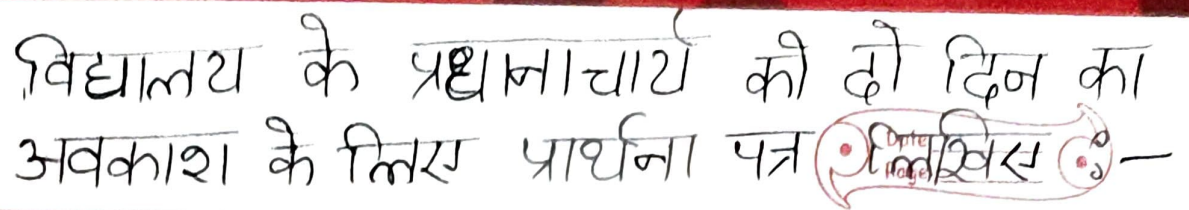 विद्यालय के प्रधानाचार्य को दो दिन का
अवकाश के लिए प्रार्थना पत्र लिखिए :-